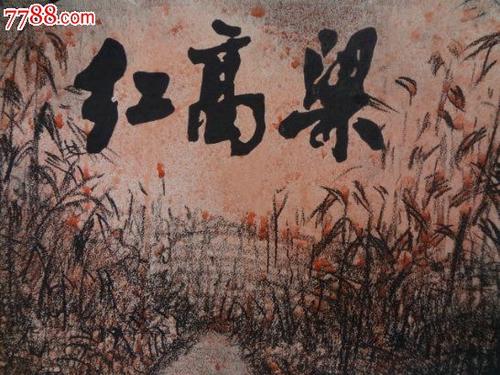 7788.com
红高梁